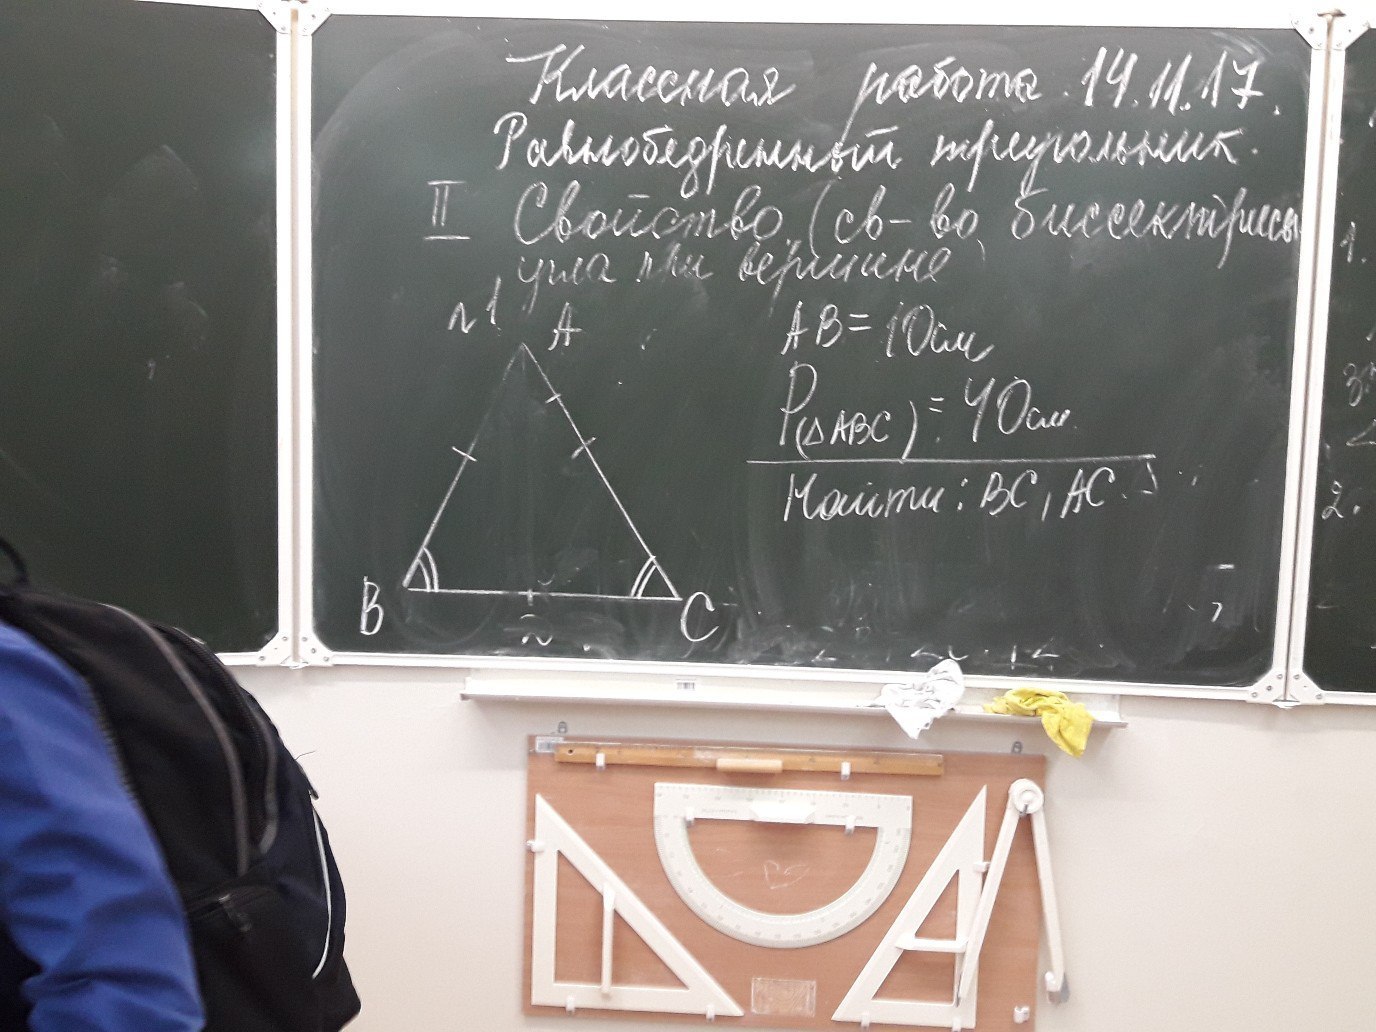 Классная работа 14.11.17.
Равнобедренный треугольник.
II Свойство (св-во биссектрисы
угла при вершине)
№1 A
AB = 10см
P(△ABC) = 40см
Найти: BC, AC.
B C
1.
2.